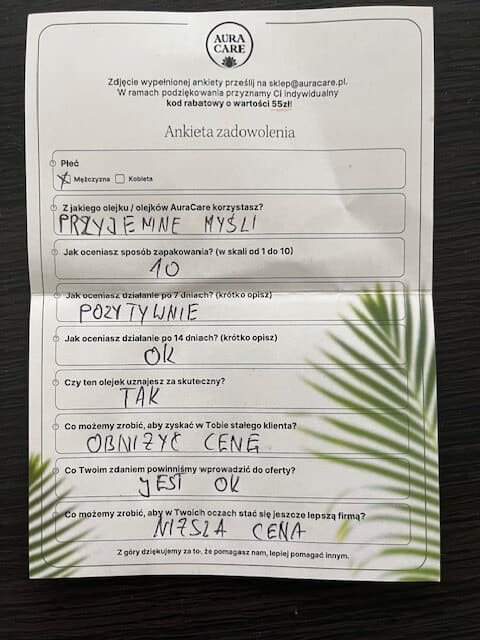 AURA
CARE
Zdjęcie wypełnionej ankiety prześlij na sklep@auracare.pl.
W ramach podziękowania przyznamy Ci indywidualny
kod rabatowy o wartości 55zł!
Ankieta zadowolenia
Płeć
Mężczyzna Kobieta
Z jakiego olejku / olejków AuraCare korzystasz?
PRZYJEMNE MYŚLI
Jak oceniasz sposób zapakowania? (w skali od 1 do 10)
10
Jak oceniasz działanie po 7 dniach? (krótko opisz)
POZYTYWNIE
Jak oceniasz działanie po 14 dniach? (krótko opisz)
OK
Czy ten olejek uznajesz za skuteczny?
TAK
Co możemy zrobić, aby zyskać w Tobie stałego klienta?
OBNIŻYĆ CENĘ
Co Twoim zdaniem powinniśmy wprowadzić do oferty?
JEST OK
Co możemy zrobić, aby w Twoich oczach stać się jeszcze lepszą firmą?
NIŻSZA CENA
Z góry dziękujemy za to, że pomagasz nam, lepiej pomagać innym.